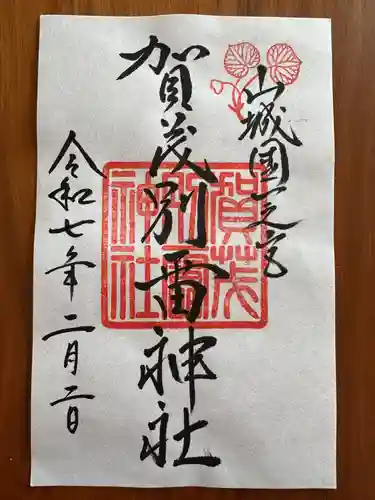 山城國一之宮
賀茂別雷神社
賀茂別雷神社
令和七年二月二日